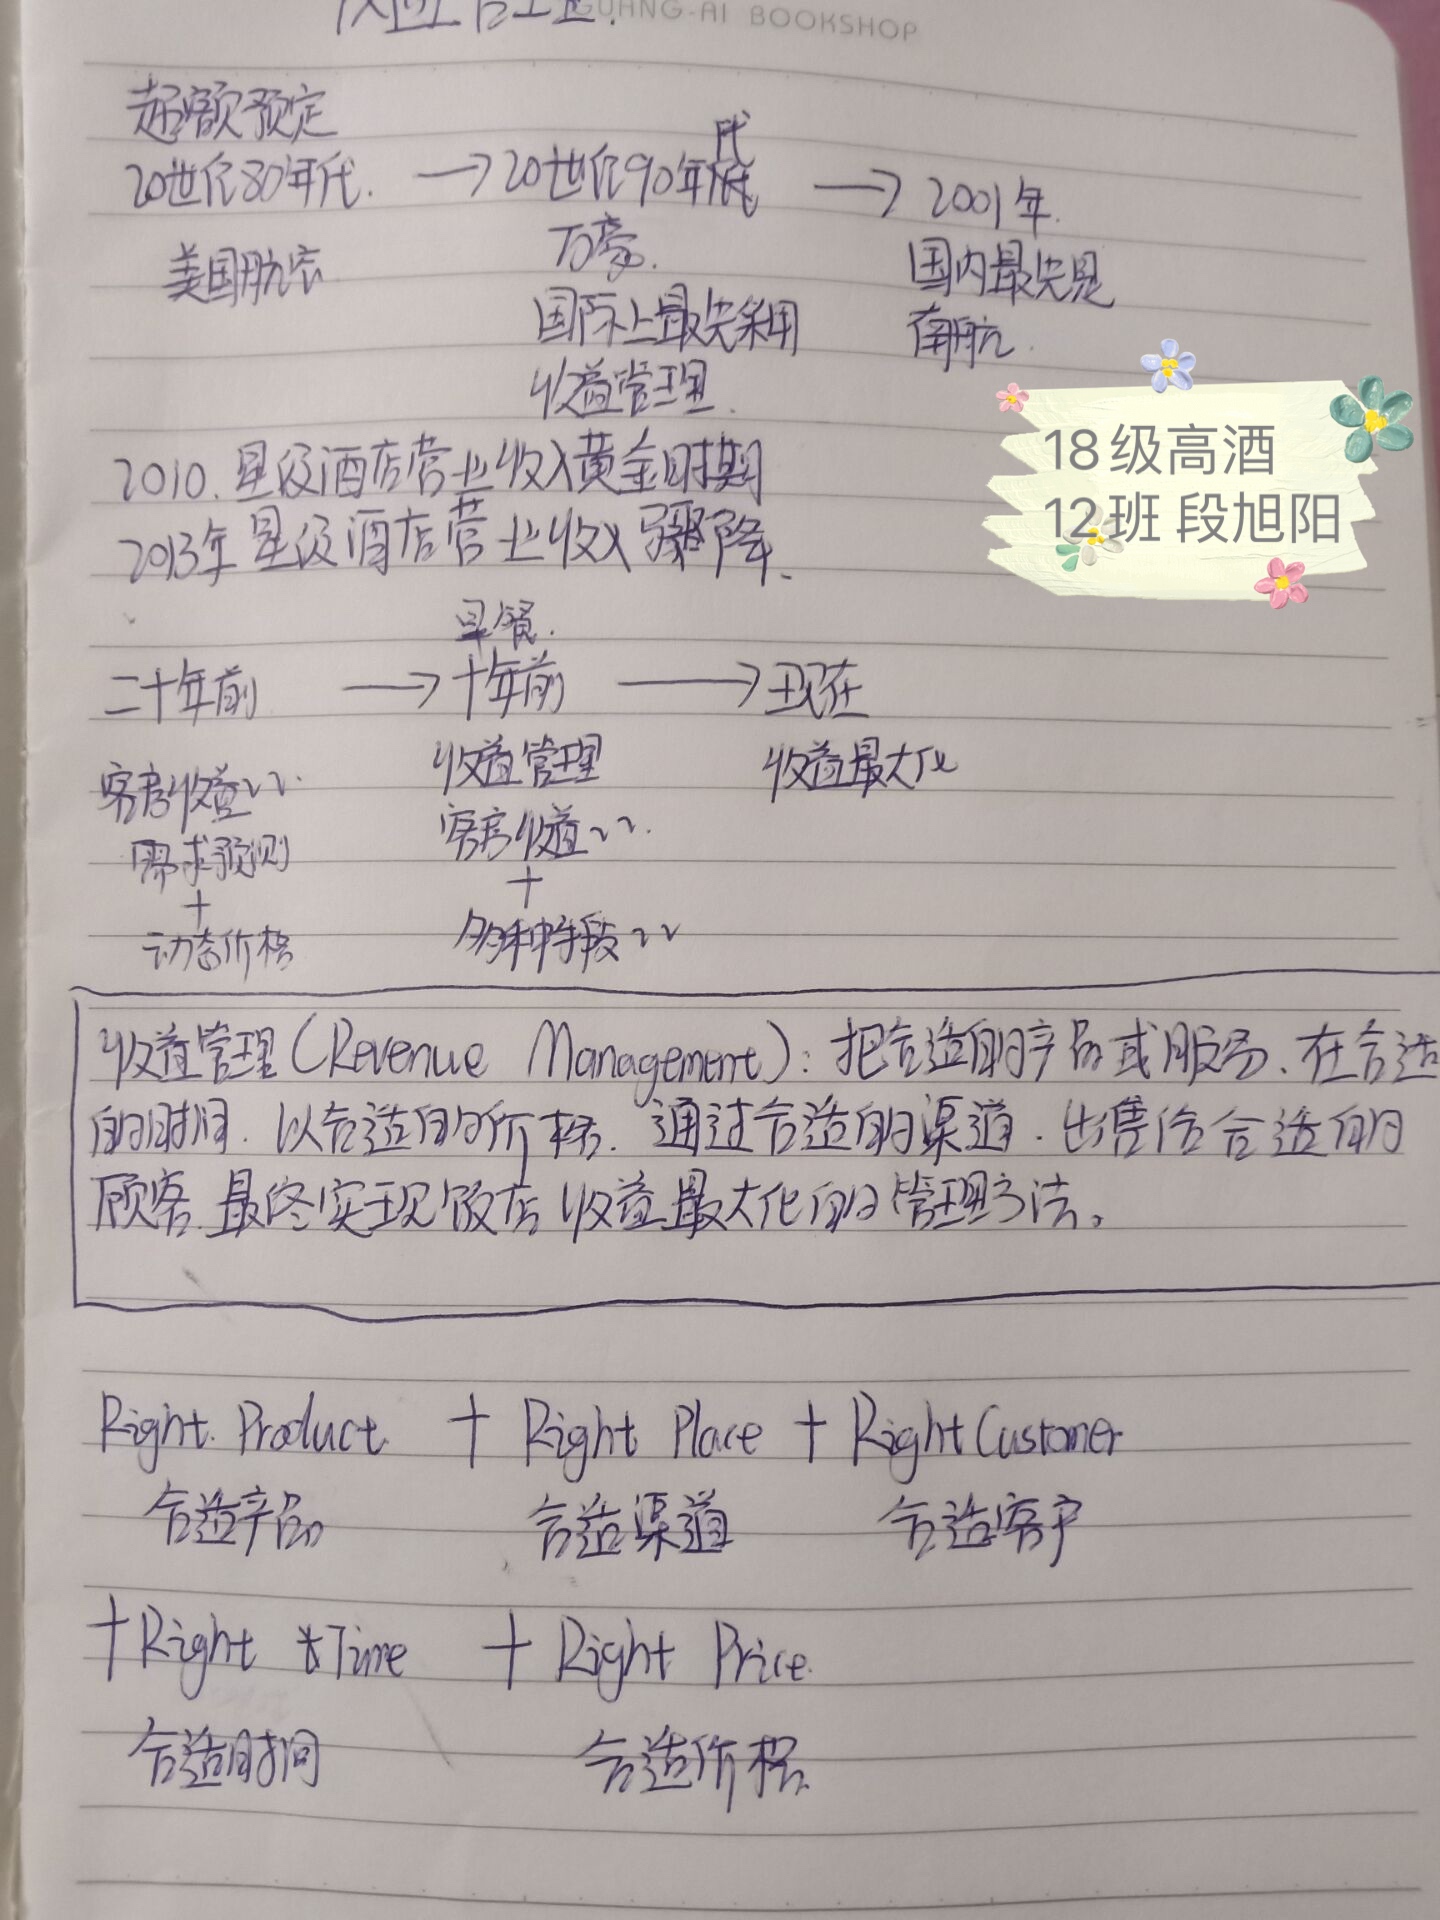 收益管理.
GUANG-AI BOOKSHOP
超额预定
20世纪80年代. → 20世纪90年代 → 2001年.
美国航 万豪. 国内最先是
国际上最先采用 南航.
收益管理.
18级高酒
12班 段旭阳
2010.星级酒店营业收入黄金时期
2013年星级酒店营业收入骤降.
早餐.
二十年前 → 十年前 → 现在
客房收益〃. 收益管理 收益最大化
需求预测 客房收益〃.
+ +
动态价格 多种手段〃
收益管理(Revenue Management):把合适的产品或服务、在合适
的时间、以合适的价格、通过合适的渠道、出售给合适的
顾客、最终实现饭店收益最大化的管理方法。
Right Product + Right Place + Right Customer
合适产品 合适渠道 合适客户
+ Right Time + Right Price.
合适时间 合适价格.